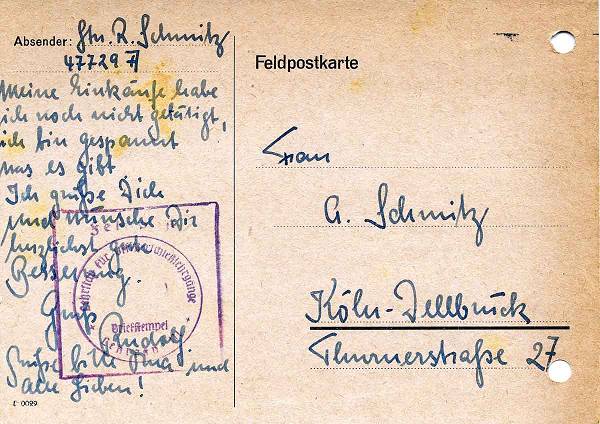 Absender: Stn. R. Schmitz
47729 A
Meine Einkäufe habe
ich noch nicht getätigt,
ich bin gespannt
was es gibt
Ich grüße Dich
und wünsche Dir
herzlichst gute
Besserung.
Gruß
Rudolf
Grüße bitte und
alle Lieben!
Feldpost
für
Briefstempel
L 0029
Feldpostkarte
Frau
A. Schmitz
Köln-Dellbrück
Thurnerstraße 27